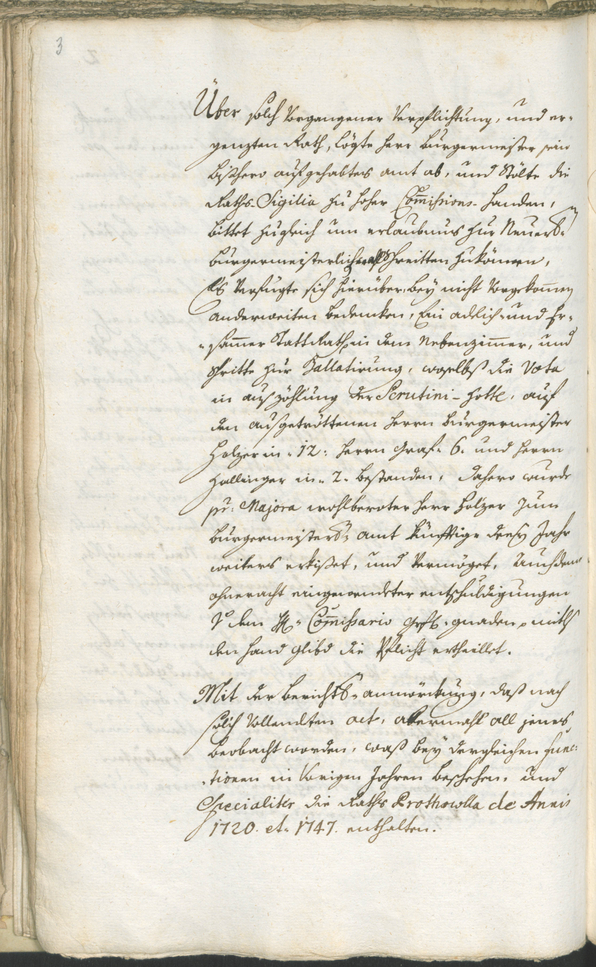 3
Über solch Vorgangener Verpflichtung, und er-
genzten Rath, legte herr burgermeister sein
bishero aufgehabtes amt ab, und stölte die
Raths Sigilia zu hoher Commissions handen,
bittet zugleich um erlaubnus zur Neuen
burgermeisterlichen schreitten zu können,
Es Verfügte sich hierüber, bey nicht Vorgekommen
anderweiten bedencken, Ein adlich- und Er-
samer StattRath in dem Nebenzimmer, und
schritte zur Ballatirung, woselbst die Vota
in auszöhlung der Scrutini-Zotte, auf
den ausgetrettenen herrn burgermeister
Holzer in 12: herrn Graf 6. und herrn
Hallinger in 2. bestanden, dahero wurde
pr: Majora wohlberater herr Holzer zum
burgermeisters amt künfftige drey Jahr
weiters erkißet, und Vermöget,
ohneracht eingewendeter entschuldigungen
dem H: Commissario Grfl. gnaden mitls
den handglibd die Pflicht ertheillet.
Mit der berichts-anmörckung, daß nach
solch Vollendten act, abermahl all jenes
beobacht worden, waß bey dergleichen Func-
tionen in Vorigen Jahren beschehen, und
Specialiter die Raths Prothocolla de Annis
1720. et. 1747. enthalten.